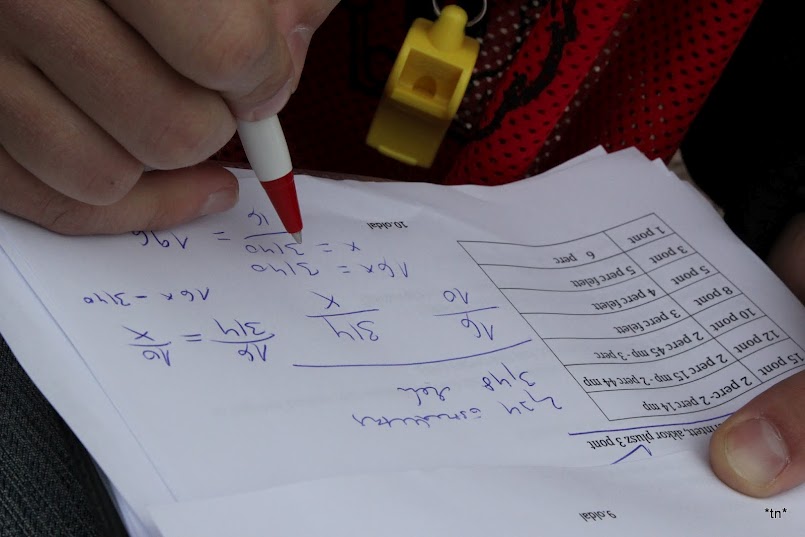 9.oldal
akkor plusz 3 pont
15 pont 2 perc - 2 perc 14 mp
12 pont 2 perc 15 mp - 2 perc 44 mp
10 pont 2 perc 45 mp - 3 perc
8 pont 3 perc felett
5 pont 4 perc felett
3 pont 5 perc felett
1 pont 6 perc
10.oldal
2,24
3,48
16 314
10 x
16 = 10
314 x
16x = 3140
16x = 3140
x = 3140 = 196
16
*tn*